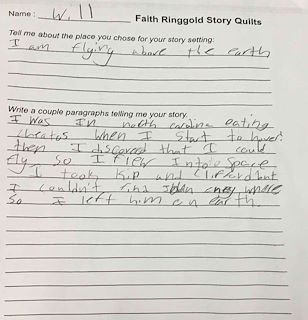 Name: Will
Faith Ringgold Story Quilts
Tell me about the place you chose for your story setting:
I am flying above the earth
Write a couple paragraphs telling me your story.
I was In north carolina eating
cheatos when I start to hover.
then I discovered that I could
fly. so I flew Into space
I took kip and Clifford but
I couldn't find any where
So I left him on earth.